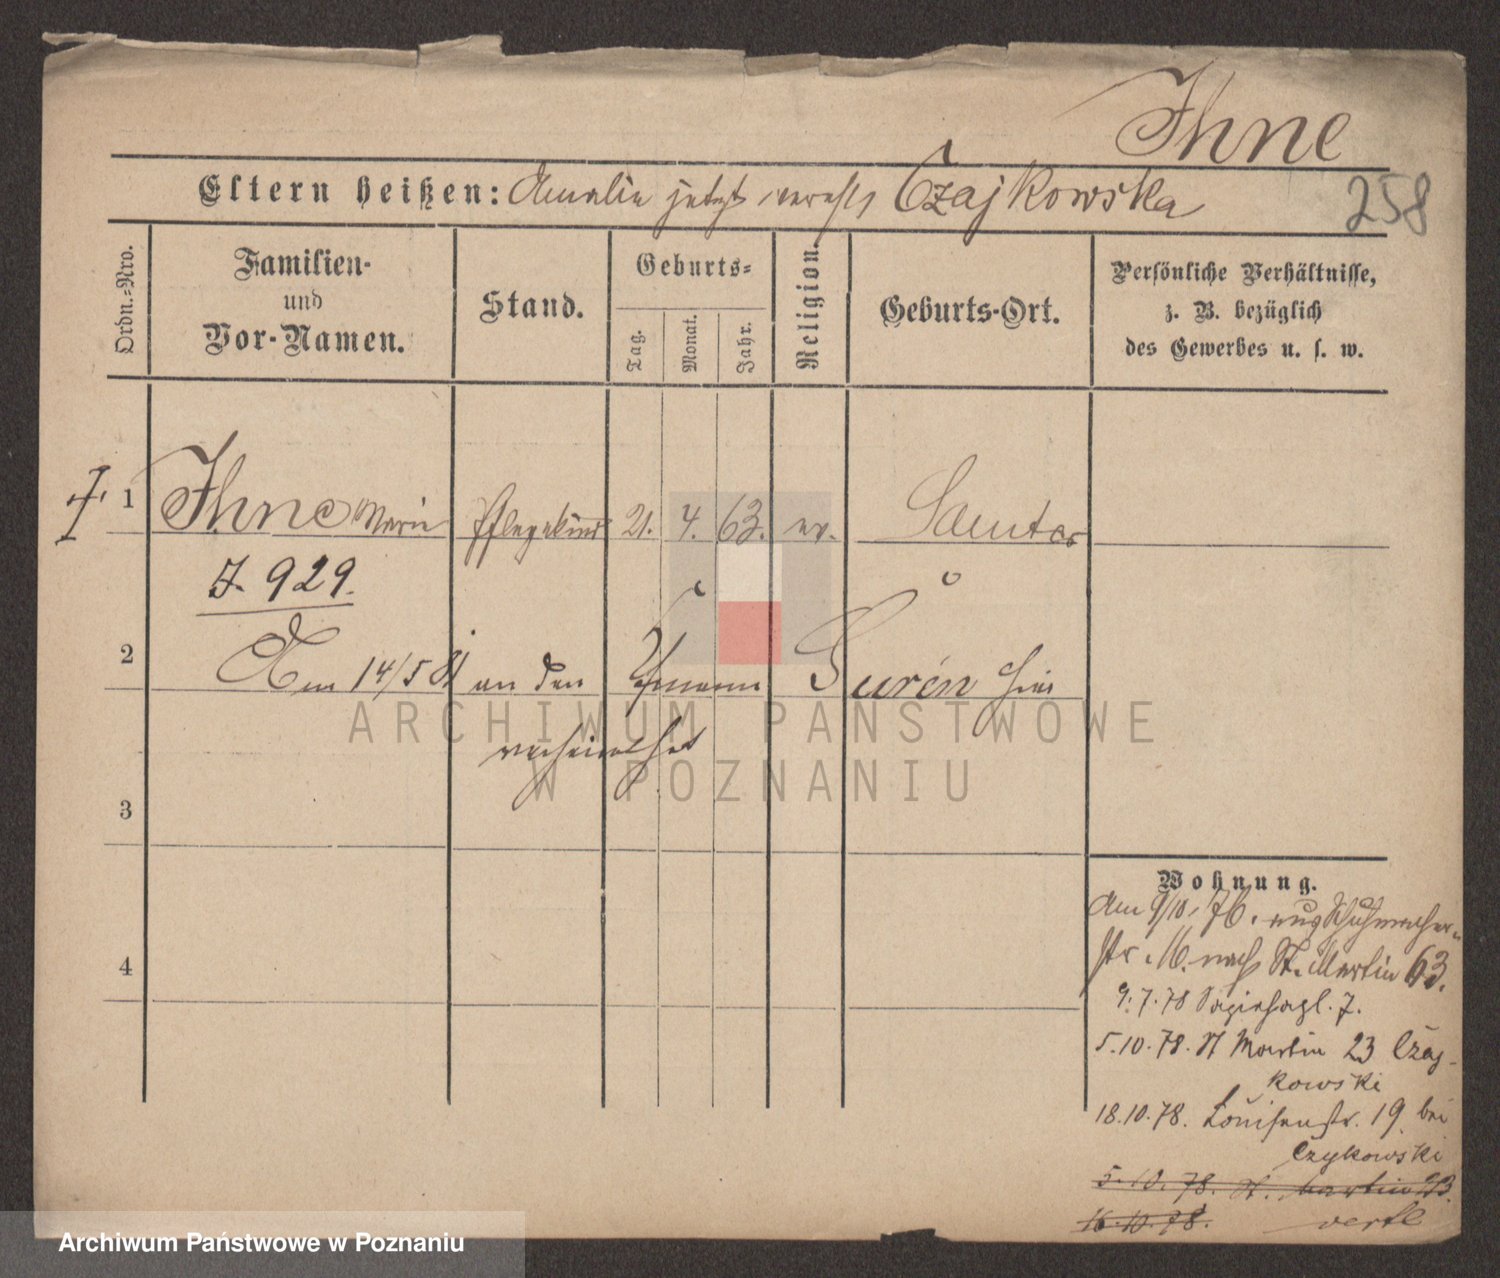 Ihne
Eltern heißen: Amalie jetzt verehl. Czajkowska
258
Ordn.-Nro.
Familien-
und
Vor-Namen.
Stand.
Geburts-
Tag.
Monat.
Jahr.
Religion.
Geburts-Ort.
Persönliche Verhältnisse,
z. B. bezüglich
des Gewerbes u. s. w.
1 Ihne Marie Pflegekind 21. 4. 63. ev. Samter
J. 929.
2 Am 14/5 81 an den Suren hier
verheirathet
ARCHIWUM PAŃSTWOWE
W POZNANIU
3
4
Wohnung.
Am 9/10. 76. aus Schuhmacher-
str. nach St. Martin 63.
9.7.78 7.
5.10.78. St Martin 23 Czaj-
kowski
18.10.78. Louisenstr. 19. bei
Czykowski
5.10.78. St. Martin 23.
16.10.78.
Archiwum Państwowe w Poznaniu